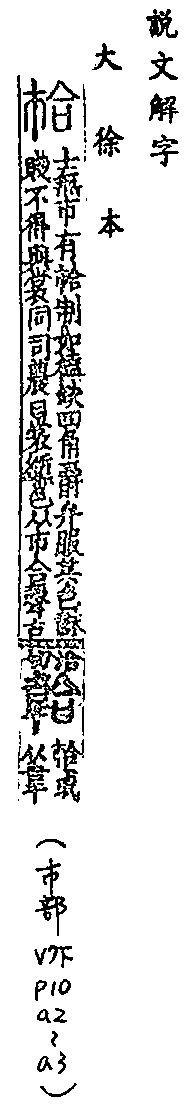 説文解字
大徐本
𢂷
士無市有𢂷制如榼缺四角爵弁服其色韎
賤不得與裳同司農曰裳纁色从市合聲古洽切
韐
𢂷或
从韋
(市部 V7下 P10 a2~a3)